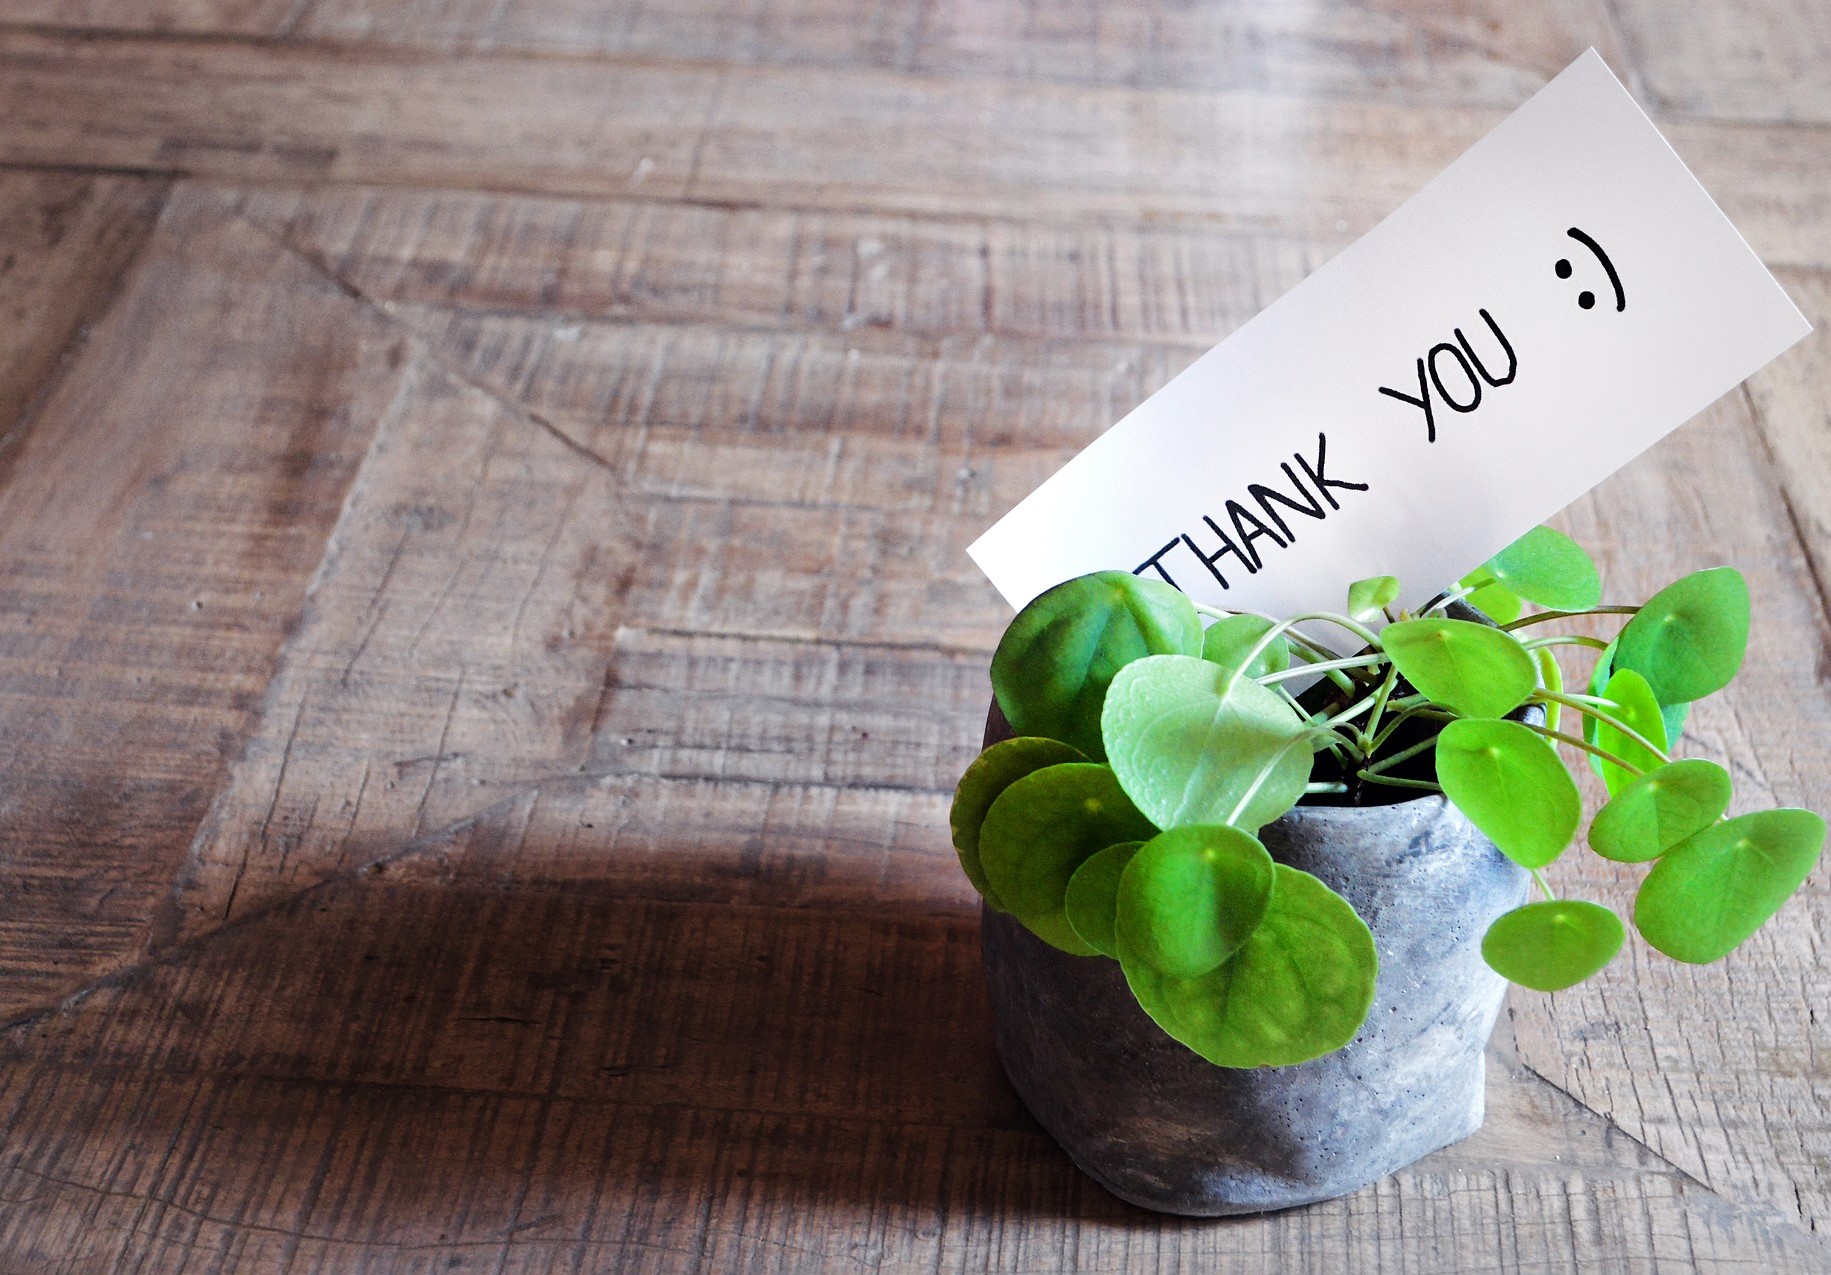 THANK YOU :)